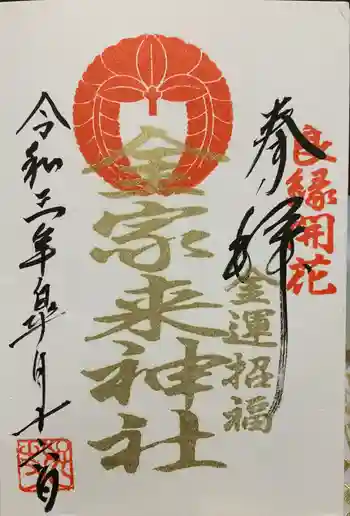 奉拝
良縁開花
金運招福
金家来神社
令和三年皐月十六日